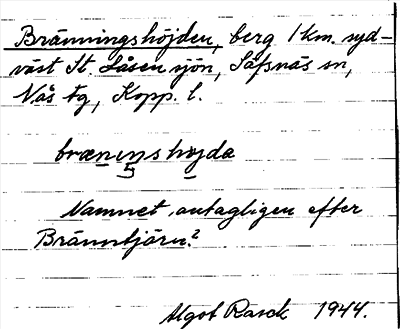 Bränningshöjden, berg 1 km. syd-
väst St. Låsen sjön, Säfsnäs sn,
Nås tg, Kopp. l.
brænıŋshøjda
Namnet antagligen efter
Bränntjärn?
Algot Rasck 1944.